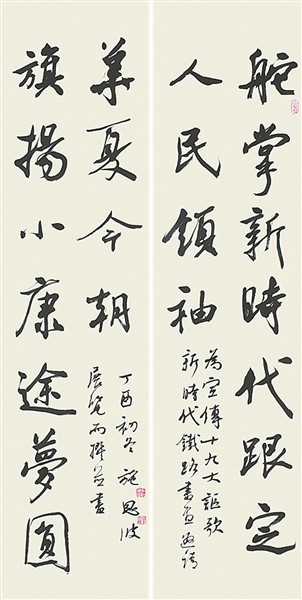 舵掌新時代跟定
人民領袖
為宣傳十九大謳歌
新時代鐵路書畫邀請
旗揚小康途夢圓
華夏今朝
展覽而撰並書
丁酉初冬 施恩波